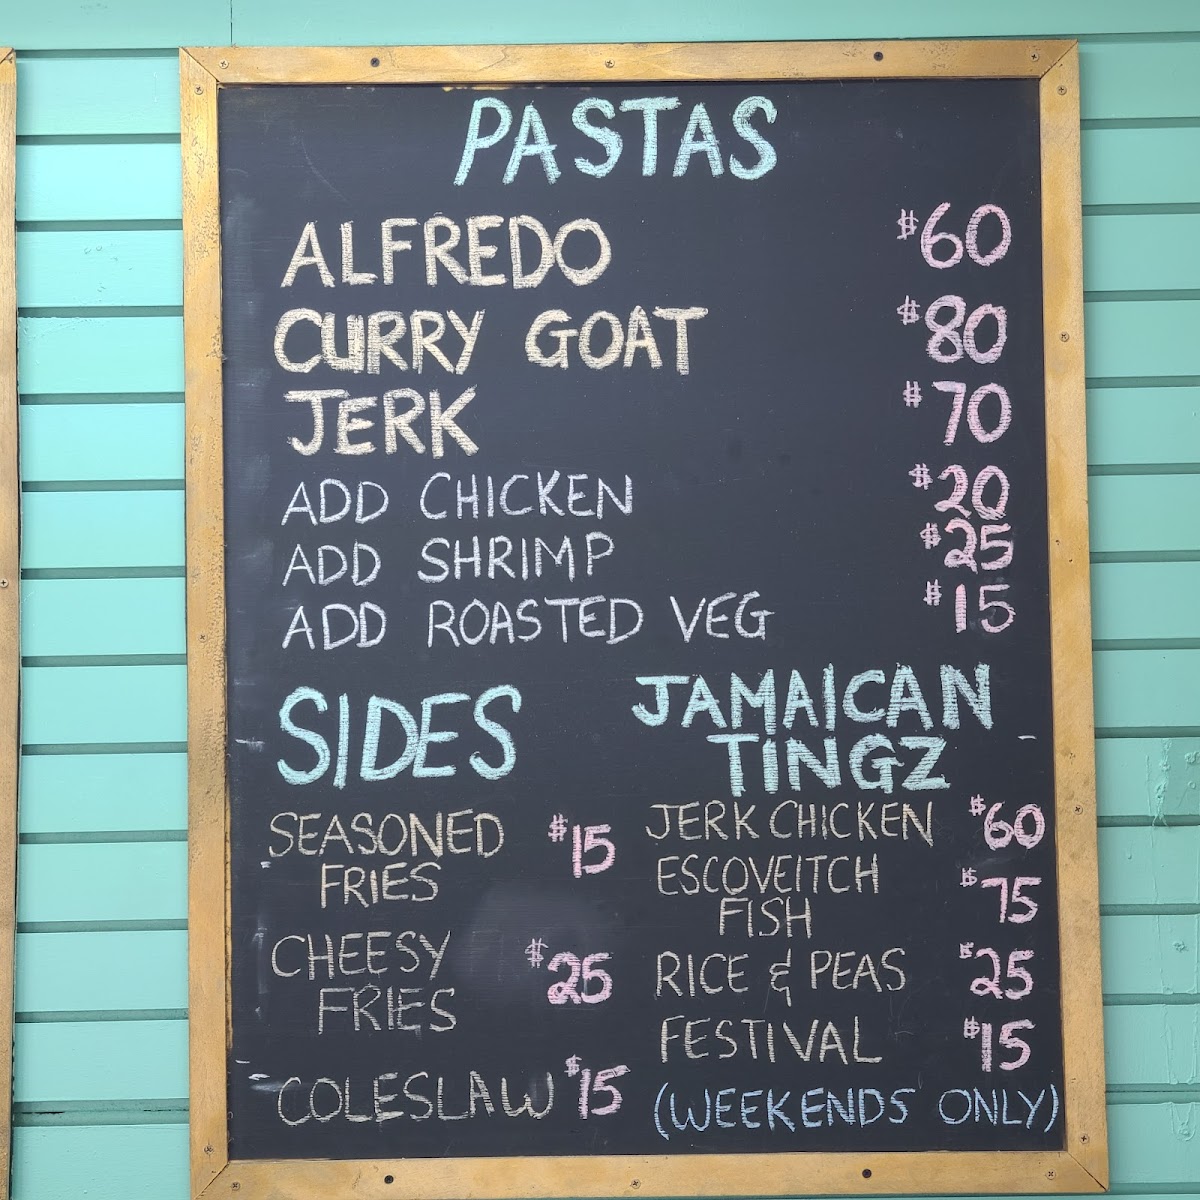 PASTAS
ALFREDO $60
CURRY GOAT $80
JERK $70
ADD CHICKEN $20
ADD SHRIMP $25
ADD ROASTED VEG $15
SIDES
SEASONED $15
FRIES
CHEESY $25
FRIES
COLESLAW $15
JAMAICAN
TINGZ
JERK CHICKEN $60
ESCOVEITCH $75
FISH
RICE & PEAS $25
FESTIVAL $15
(WEEKENDS ONLY)